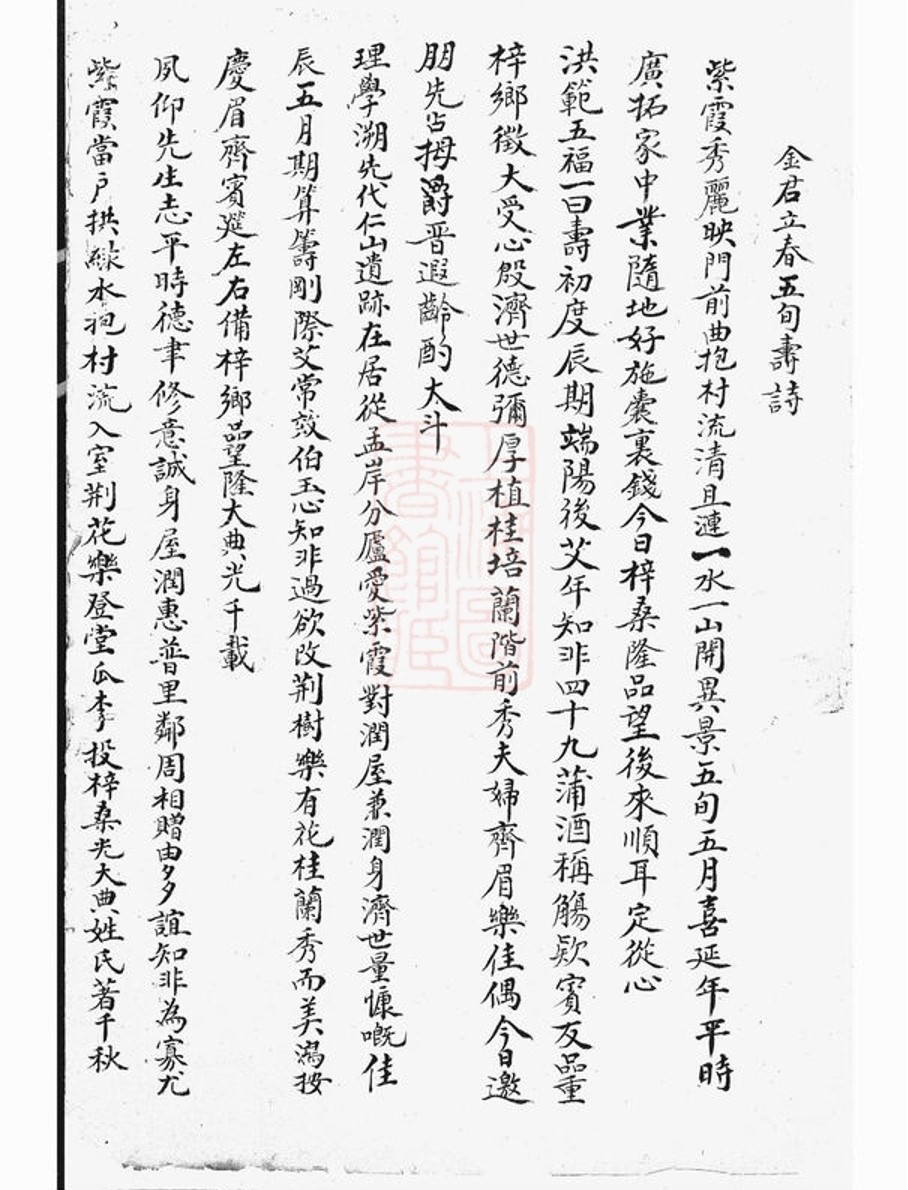 金君立春五旬壽詩
紫霞秀麗映門前曲抱村流清且漣一水一山開異景五旬五月喜延年平時
廣拓家中業隨地好施囊裏錢今日梓桑隆品望後來順耳定從心
洪範五福一曰壽初度辰期端陽後艾年知非四十九蒲酒稱觴欵賓友品重
梓鄉徵大受心殷濟世德彌厚植桂培蘭階前秀夫婦齊眉樂佳偶今日邀
朋先占拇爵晋遐齡酌大斗
理學溯先代仁山遺跡在居從孟岸分廬愛紫霞對潤屋兼潤身濟世量慷嘅佳
辰五月期算籌剛際艾常效伯玉心知非過欲改荆樹樂有花桂蘭秀而美潙按
慶眉齊賓筵左右備梓鄉品望隆大典光千載
夙仰先生志平時德聿修意誠身屋潤惠普里鄰周相贈由多多誼知非為寡尤
紫霞當戶拱綠水抱村流入室荆花樂登堂瓜李投梓桑光大典姓氏著千秋